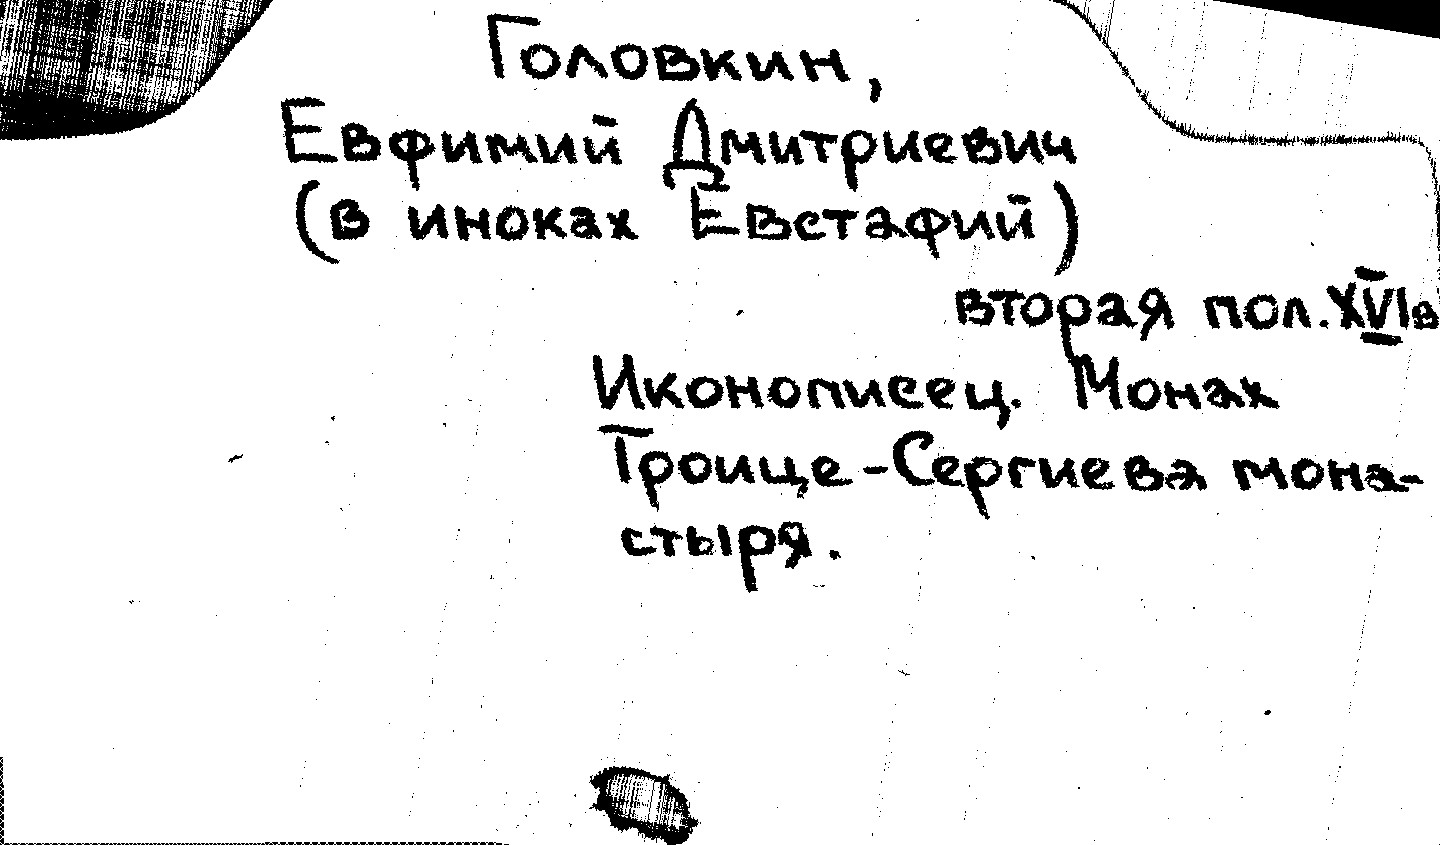 Головкин,
Евфимий Дмитриевич
(в иноках Евстафий)
вторая пол. XVI в
Иконописец. Монах
Троице-Сергиева мона-
стыря.